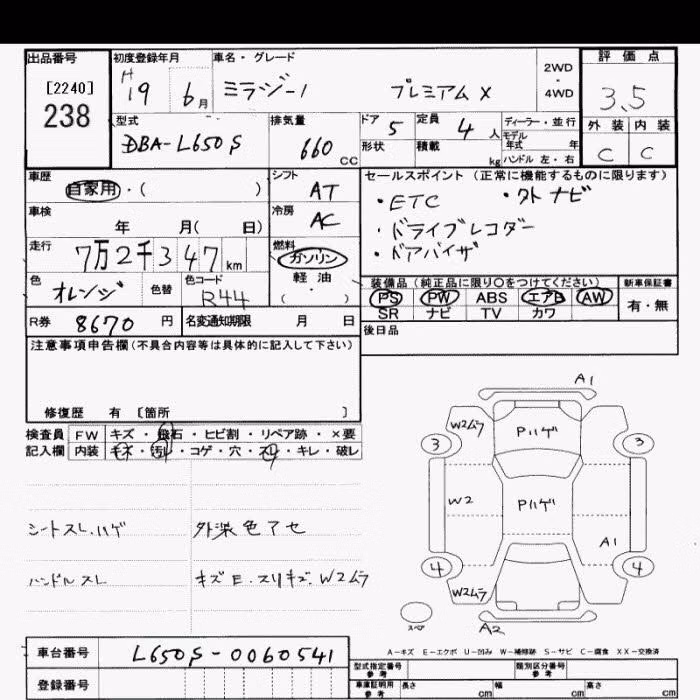 出品番号
[2240]
238
初度登録年月
H
19 6月
車名・グレード
ミラジーノ プレミアム X
2WD
・
4WD
評価点
3.5
外装 内装
C C
型式
DBA-L650S
排気量
660 CC
ドア 5
定員 4 人
形状
積載 kg
ディーラー・並行
モデル
年式 年
ハンドル 左・右
車歴
自家用・( )
シフト
AT
車検
年 月( 日)
冷房
AC
走行
7万2千347km
燃料
ガソリン
軽油
( )
色
オレンジ
色替
色コード
R44
R券 8670円
名変通知期限 月 日
セールスポイント(正常に機能するものに限ります)
・ETC ・外ナビ
・ドライブレコダー
・ドアバイザ
装備品(純正品に限り○をつけてください)
PS PW ABS エアB AW
SR ナビ TV カワ
新車保証書
有・無
後日品
注意事項申告欄(不具合内容等は具体的に記入して下さい)
修復歴 有 [箇所 ]
検査員 FW キズ・飛石・ヒビ割・リペア跡・×要
記入欄 内装 キズ・汚れ・コゲ・穴・スリ・キレ・破レ
シートスレ.ハゲ
外装色アセ
ハンドルスレ
キズE.スリキズ.W2ムラ
A1
W2ムラ
Pハゲ
3 3
W2
Pハゲ
A1
4 4
W2ムラ
スペア
A2
A-キズ E-エクボ U-凹み W-補修跡 S-サビ C-腐食 XX-交換済
車台番号 L650S-0060541
登録番号
型式指定番号
参考
類別区分番号
参考
車庫証明用
参考
長さ cm
幅 cm
高さ cm